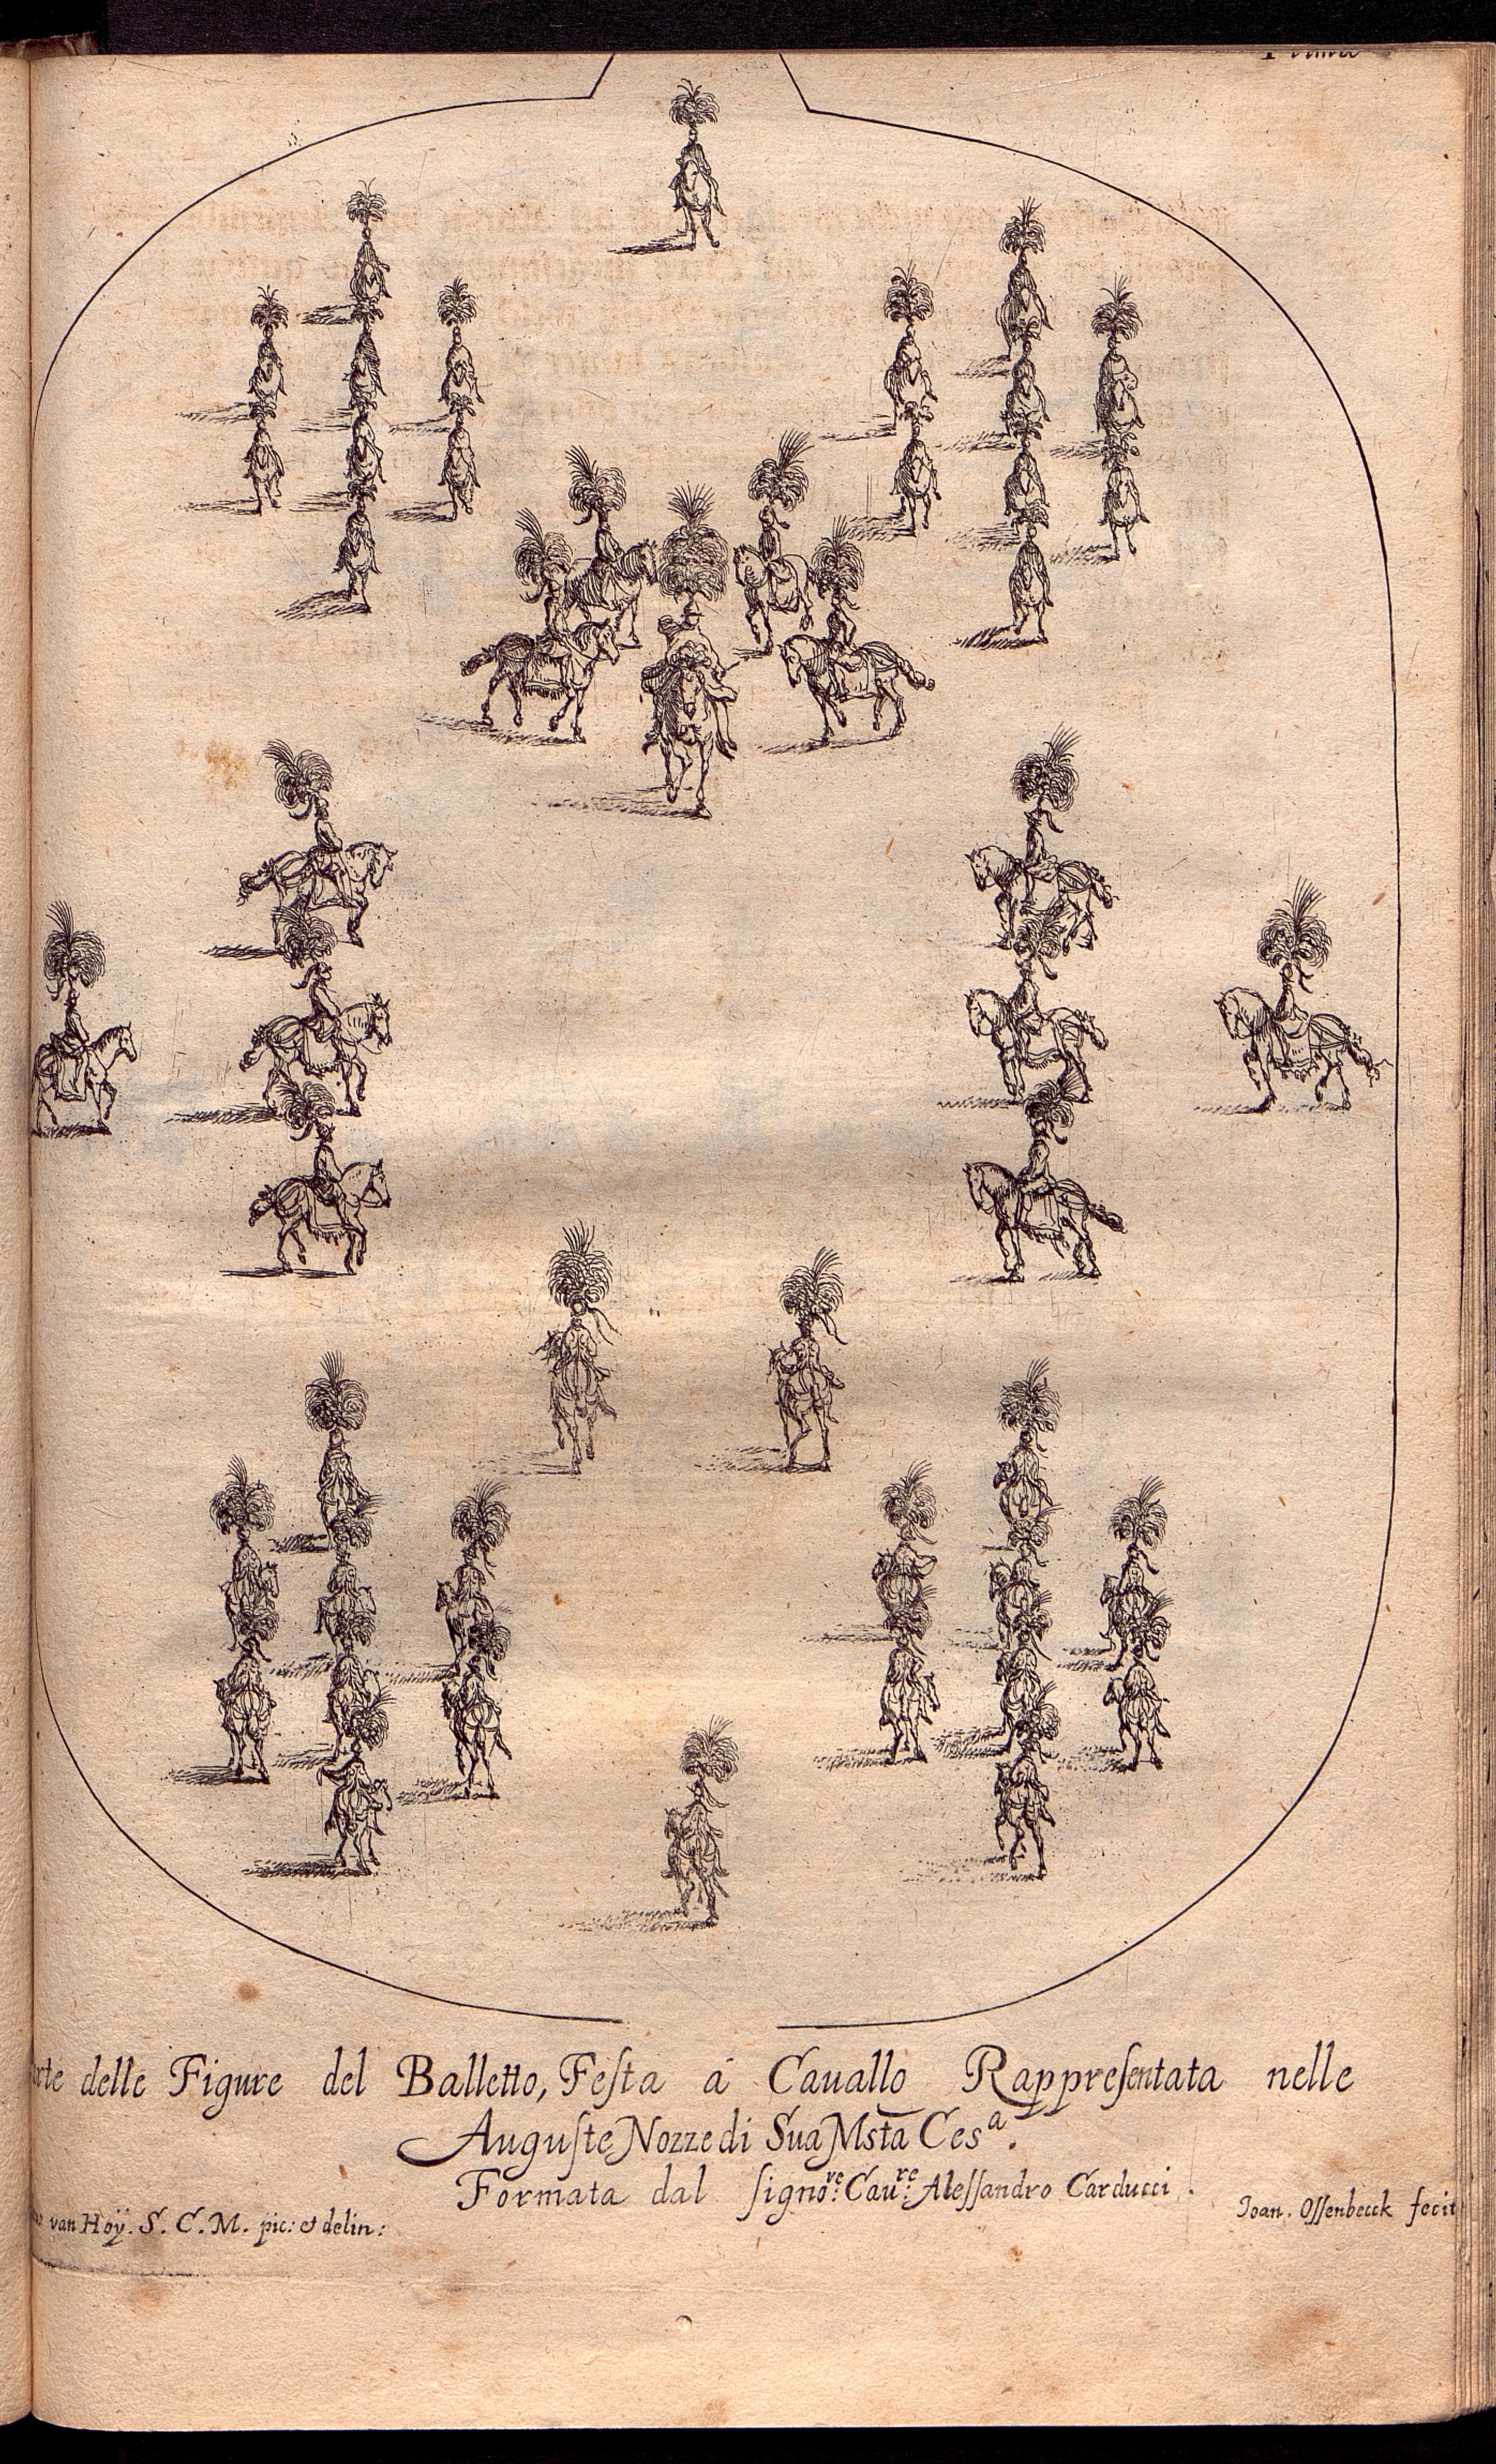 delle Figure del Balletto, Feſta á Cauallo Rappreſentata nelle
Auguſte Nozze di Sua Msta Cesª.
Formata dal ſignoʳᵉ: Cauʳᵉ: Aleſſandro Carducci.
van Hoÿ. S. C. M. pic: et delin:
Joan. Oſſenbecck fecit